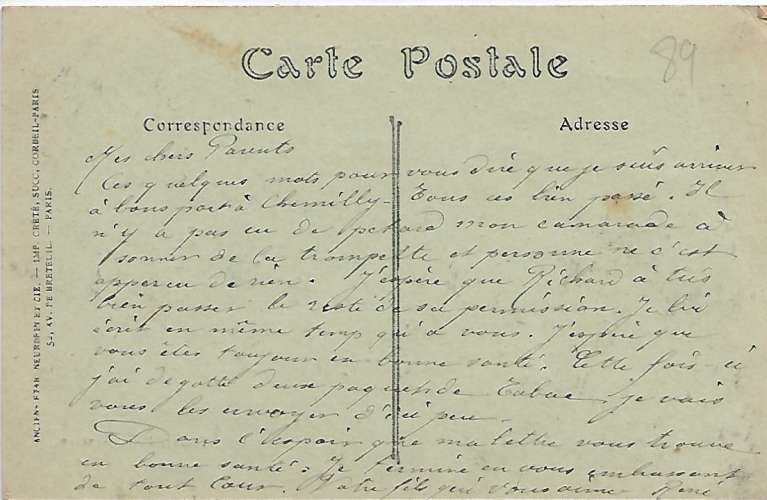 Carte Postale
89
Correspondance
Adresse
ANCIENS ETAB. NEURDEIN ET CIE. — IMP. CRÉTÉ, SUCC, CORBEIL-PARIS
52, AV. DE BRETEUIL. — PARIS.
Mes chers Parents
Ces quelques mots pour vous dire que je suis arriver
à bons port à Chemilly - Tous ces bien passé. Il
n'y a pas eu de petard mon camarade à
sonner de la trompette et personne ne c'est
apperçu de rien. J'espère que Richard à très
bien passer le reste de sa permission. Je lui
écris en même temp qu'a vous. J'espère que
vous êtes toujour en bonne santé. Cette fois-ci
j'ai degotté deux paquets de Tabac je vais
vous les envoyer d'ici peu.
Dans l'espoir que ma lettre vous trouve
en bonne santé. Je termine en vous embrassant
de tout Cœur. Votre fils qui vous aime René